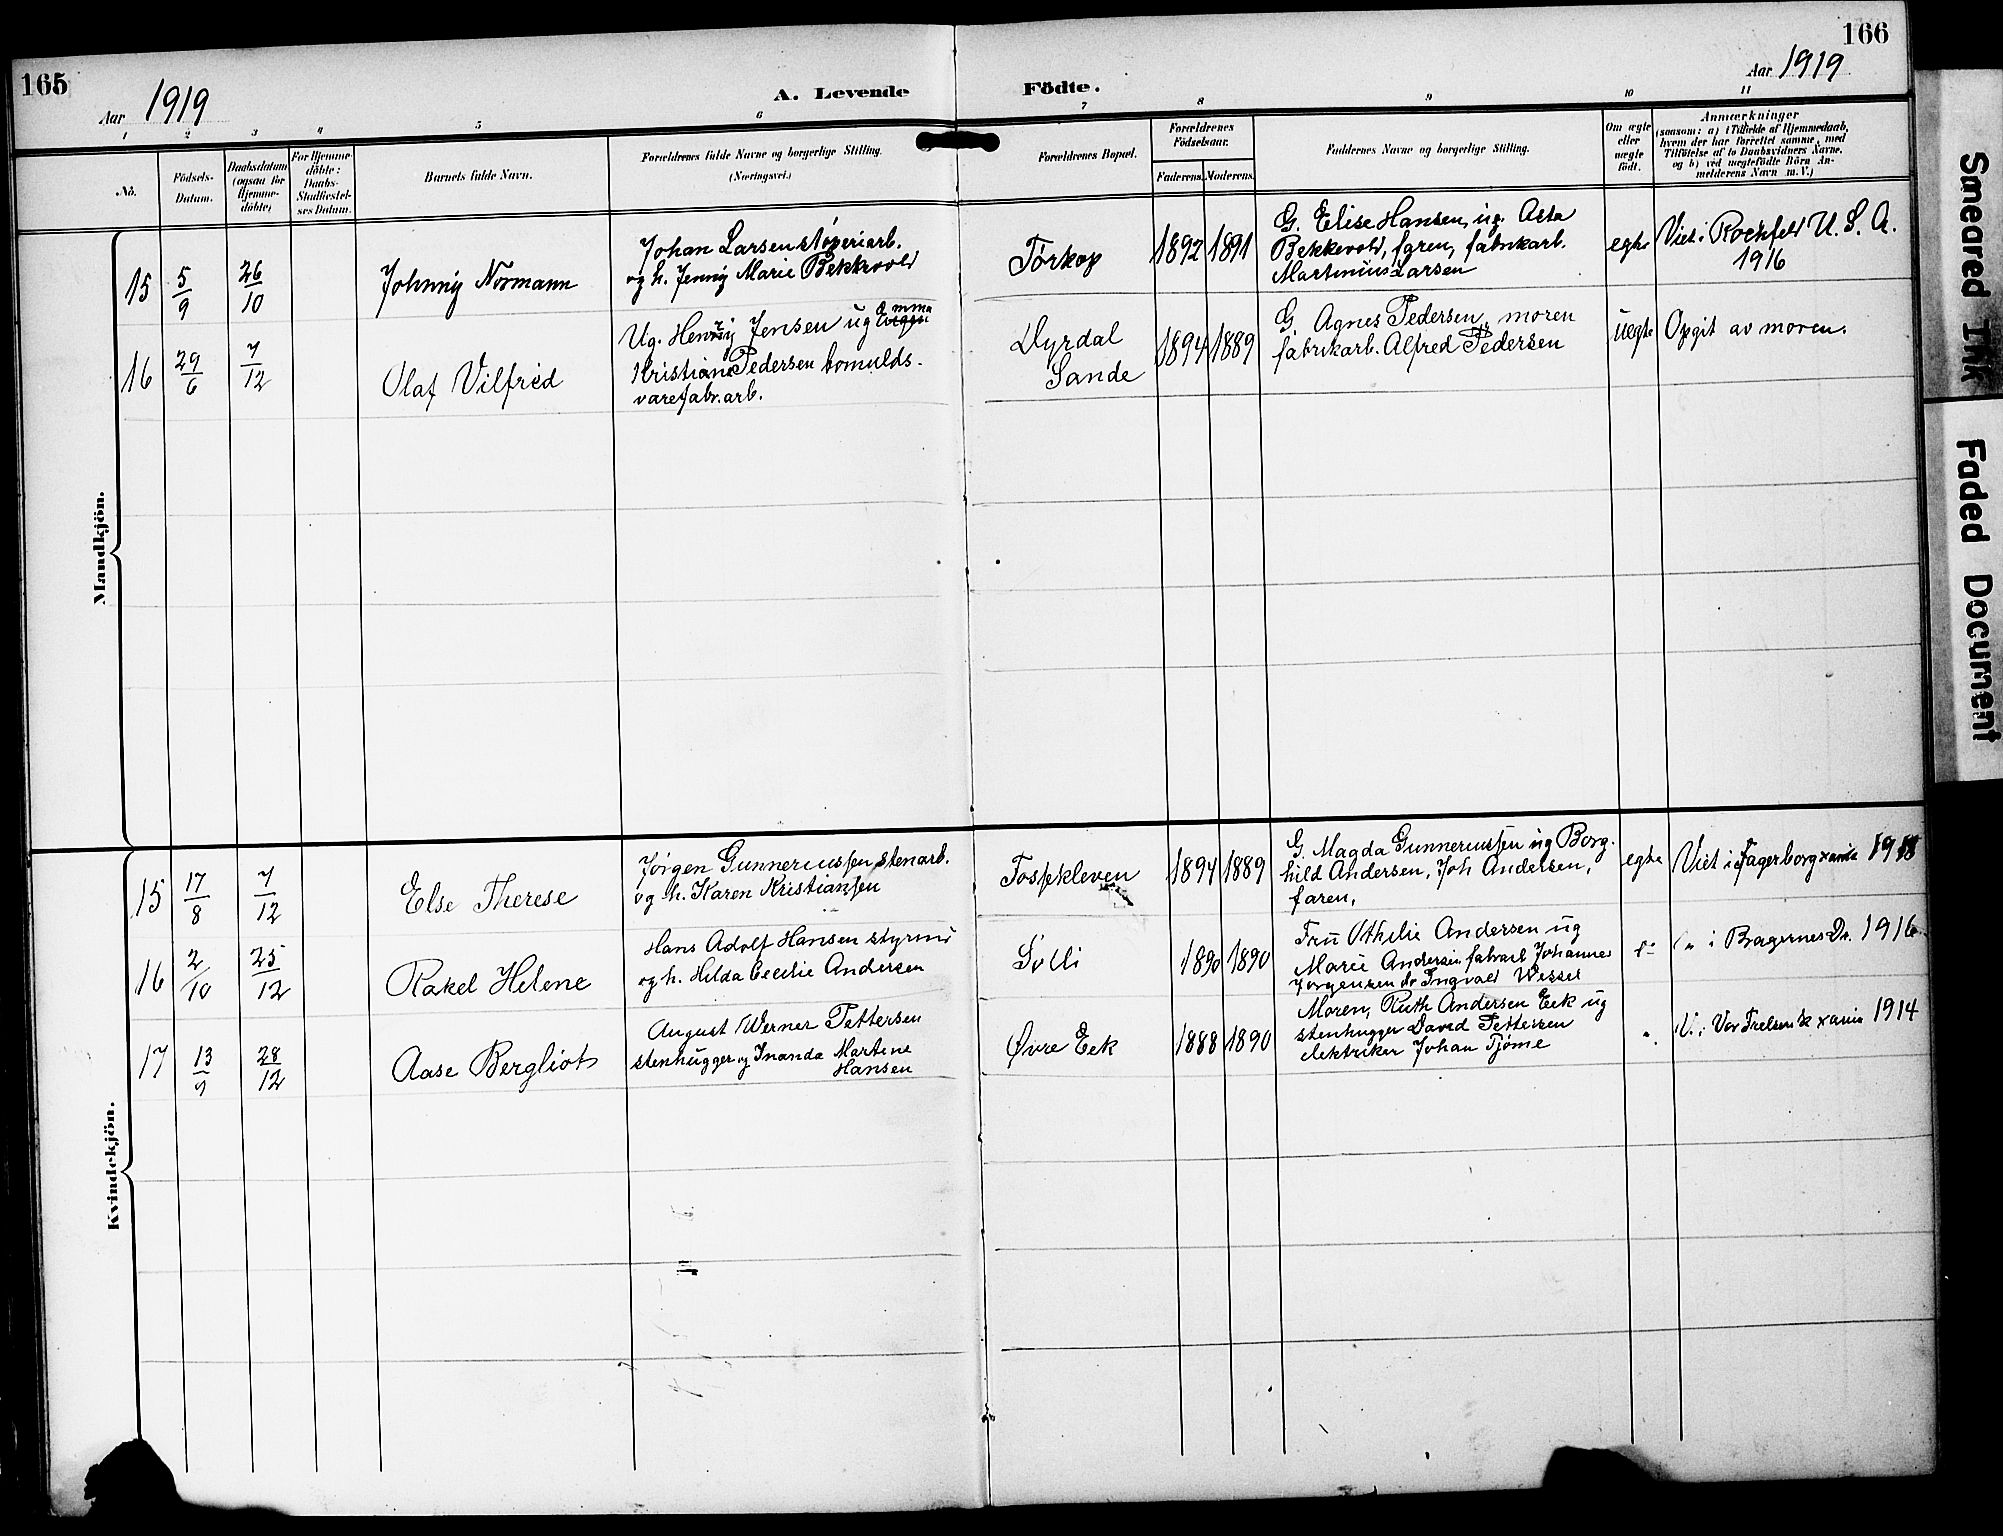 165
Aar 1919
A. Levende
Födte.
166
Aar 1919
1
2
3
4
5
6
7
8
9
10
11
No.
Födsels-
Datum.
Daabsdatum
(ogsaa for
Hjemme-
döbte)
For Hjemme-
döbte:
Daabs-
Stadfæstel-
ses Datum.
Barnets fulde Navn.
Forældrenes fulde Navne og borgerlige Stilling.
(Næringsvei.)
Forældrenes Bopæl.
Forældrenes
Födselsaar.
Faderens.
Moderens.
Faddernes Navne og borgerlige Stilling.
Om ægte
eller
uægte
født.
Anmærkninger
(saasom: a) i Tilfælde af Hjemmedaab,
hvem der har forrettet samme, med
Tilföielse af to Daabsvidners Navne,
og b) ved uægtefödte Börn An-
melderens Navn m. V.)
Mandkjön.
15
5/9
26/10
Johnny Normann
Johan Larsen støperiarb.
og h. Jenny Marie Bekkevold
Torkop
1892
1891
G. Elise Hansen, ug. Asta
Bekkevold, faren, fabrikarb.
Martinius Larsen
egte
Viet i Rockfeld U. S. A.
1916
16
29/6
7/12
Olaf Vilfred
Ug. Henry Jensen ug Emma
Kristiane Pedersen bomulds-
varefabr.arb.
Dyrdal
Sande
1894
1889
G. Agnes Pedersen, moren
fabrikarb. Alfred Pedersen
uegte
Opgit av moren.
Kvindekjön.
15
17/8
7/12
Else Therese
Jørgen Gunneriussen, stenarb.
og h. Karen Kristiansen
Fossekleven
1894
1889
G. Magda Gunneriussen ug Borg-
hild Andersen, Joh Andersen,
faren,
egte
Viet i Fagerborg xania 1918
16
2/10
25/12
Rakel Helene
Hans Adolf Hansen styrm
og h. Hilda Cecilie Andersen
Solli
1890
1890
Fru Othilie Andersen ug
Marie Andersen fabrarb Johannes
Jørgensen do Ingvald Wessel
do
" i Bragernes Dr. 1916
17
13/9
28/12
Aase Bergliot
August Werner Pettersen
stenhugger og Inanda Martine
Hansen
Øvre Eek
1888
1890
Moren, Ruth Andersen Eek ug
stenhugger David Pettersen
elektriker Johan Tjøme
".
V. i Vor Frelsers k xania 1914
Smeared Ink
Faded Document